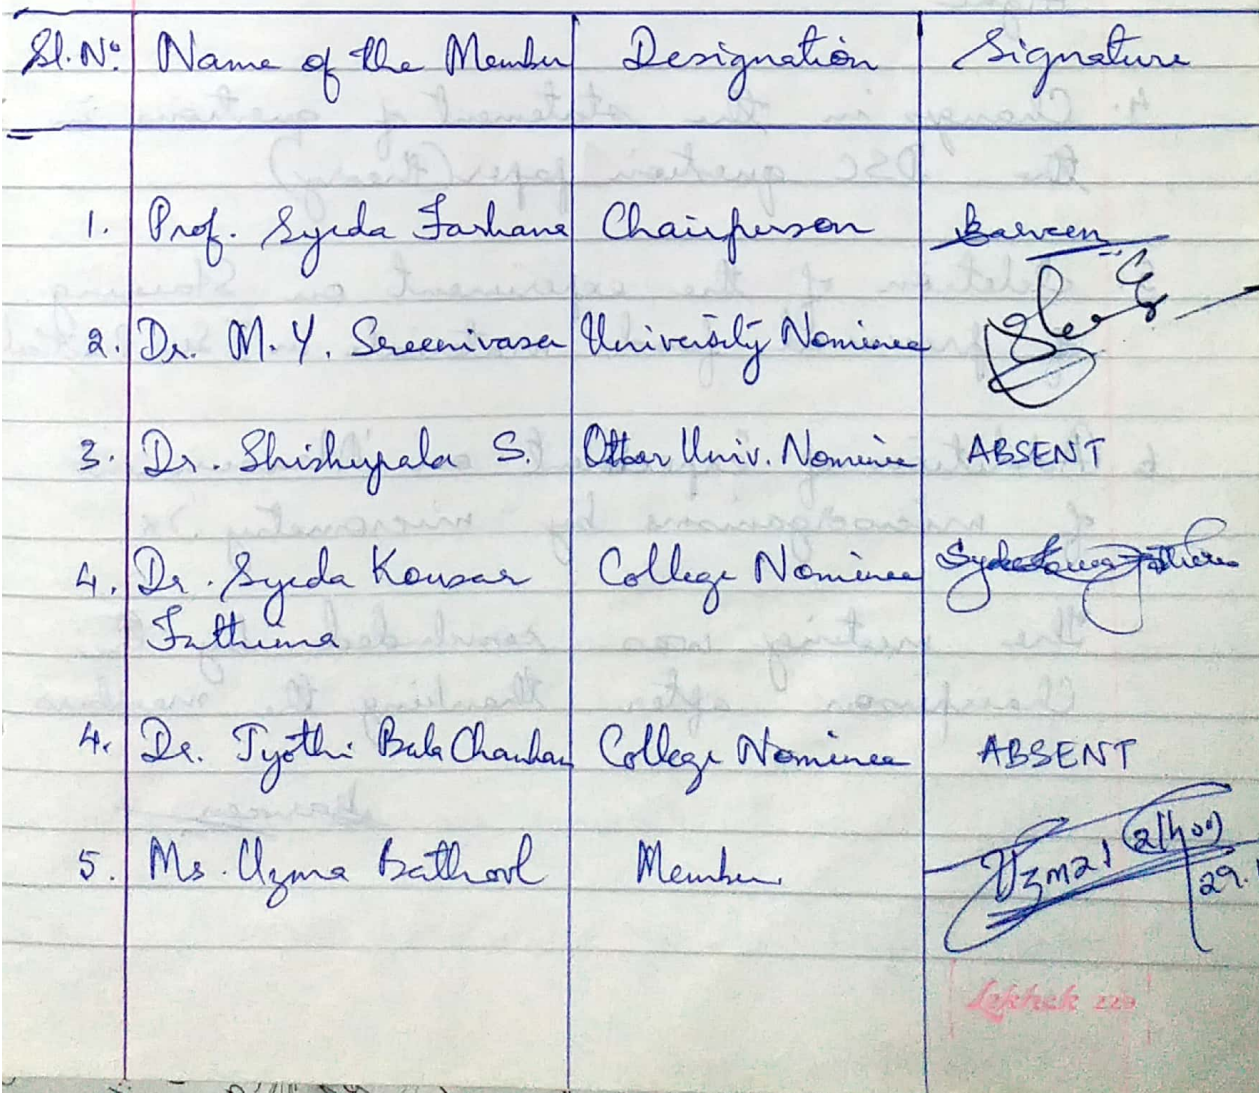 Sl. No. Name of the Member Designation Signature
1. Prof. Syeda Farhana Chairperson Parveen
2. Dr. M. Y. Sreenivasa University Nominee
3. Dr. Shishupala S. Other Univ. Nominee ABSENT
4. Dr. Syeda Kousar College Nominee Syeda Kousar Fathima
Fathima
4. Dr. Jyothi Bala Chauhan College Nominee ABSENT
5. Ms. Uzma Bathool Member Uzma
29.
Lekhak